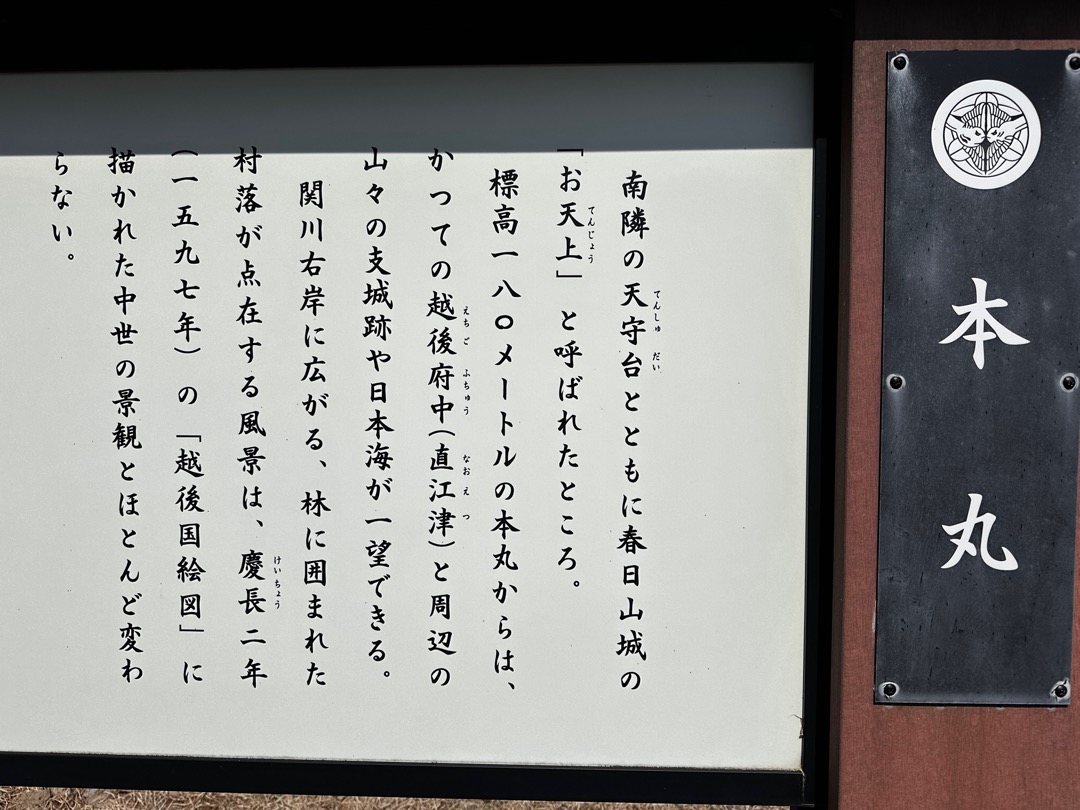 本丸
南隣の天守台とともに春日山城の
てんしゅだい
「お天上」と呼ばれたところ。
てんじょう
標高一八〇メートルの本丸からは、
かつての越後府中(直江津)と周辺の
えちごふちゅう なおえつ
山々の支城跡や日本海が一望できる。
関川右岸に広がる、林に囲まれた
村落が点在する風景は、慶長二年
けいちょう
(一五九七年)の「越後国絵図」に
描かれた中世の景観とほとんど変わ
らない。